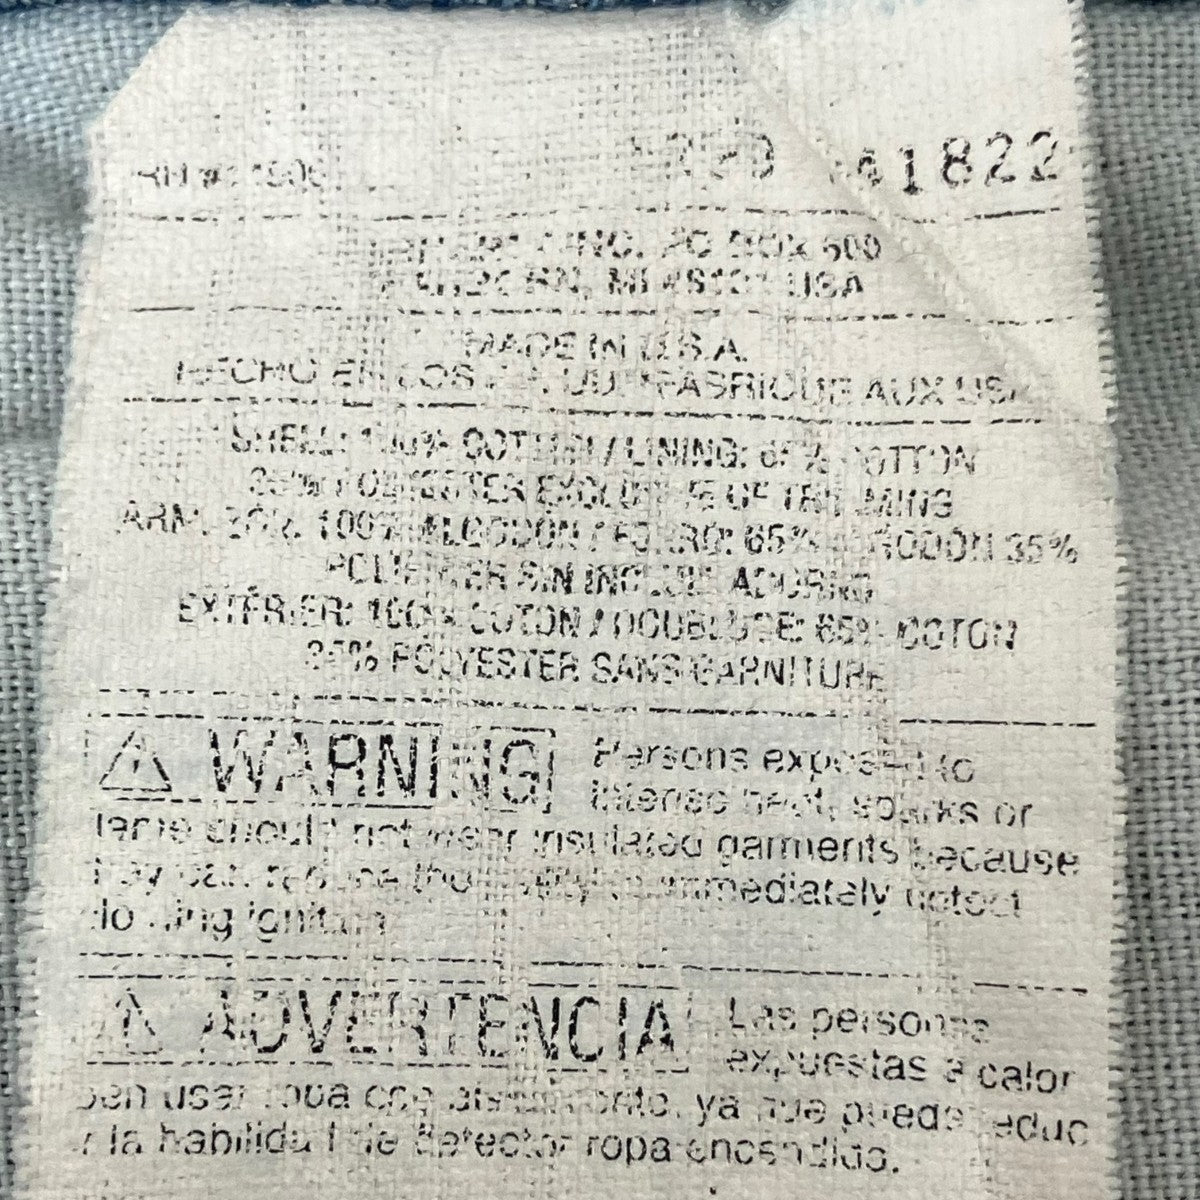 RN # 41822
INC. PO BOX 600
MI 48121 USA
MADE IN U.S.A.
HECHO EN LOS FABRIQUE AUX USA
SHELL: 100% COTTON / LINING: 65% COTTON
35% POLYESTER EXCLUSIVE OF TRIMMING
100% ALGODON / FORRO: 65% ALGODON 35%
POLIESTER SIN INCLUIR ADORNO
EXTÉRIER: 100% COTON / DOUBLURE: 65% COTON
35% POLYESTER SANS GARNITURE
WARNING Persons exposed to
intense heat, sparks or
flame should not wear insulated garments because
they can reduce the ability to immediately detect
clothing ignition
ADVERTENCIA Las personas
expuestas a calor
ben usar ropa con aislamiento, ya que puede reduc
r la habilidad de detector ropa encendido.